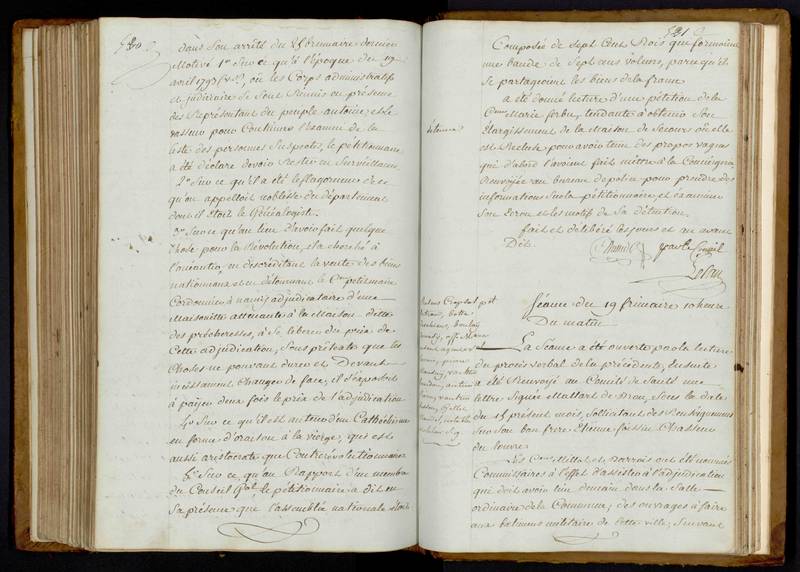 520
dans Son arrêté du 25 brumaire dernier
Motivé 1° Sur ce qu'à l'époque du 19
avril 1793 (v.s.), où les Corps administratifs
et judiciaire se Sont Réunis en présence
des Représentant du peuple antoine, et Le
vasseur pour Continuer l'Examen de la
liste des personnes Suspectes, le petitionnaire
a été déclaré devoir Rester en Surveillance
2° Sur ce qu'il a été le flagorneur de ce
qu'on appelloit noblesse du département
dont il Etoit le Généalogiste.
3° Sur ce qu'au lieu d'avoir fait quelque
Chose pour la Révolution, il a cherché à
l'anéantir, en discréditant la vente des biens
nationnaux et en détournant le C.en petitmaire
Cordonnier à nancy adjudicataire d'une
Maisonnette attenante à la Maison dite
des prêcheresses, à Se libérer du prix de
Cette adjudication, Sous prétexte que les
Choses ne pouvant durer et Devant
incessamment Changer de face, il S'exposeroit
à payer deux fois le prix de l'adjudication
4° Sur ce qu'il est auteur d'un Cathéchisme
en forme d'oraison à la vierge, qui est
aussi aristocrate que Contrerévolutionnaire
5° Sur ce qu'au Rapport d'un membre
du Conseil g.al le pétitionnaire a dit en
Sa présence que l'assemblée nationale étoit
521
Composée de Sept Cent Rois qui formoient
une bande de Sept cens voleurs, parce qu'ils
se partageoient les biens de la france
a été donné lecture d'une pétition de la
C.enne Marie forbu, tendante à obtenir Son
Elargissement de la Maison de Secours où elle
est Recluse pour avoir tenu des propos vagues
qui d'abord l'avoient fait mettre à la Conciergerie
Renvoyée au bureau de police pour prendre des
informations Sur la pétitionnaire, et examiner
Son Ecrou et les motifs de Sa détention.
fait et délibéré les jours et an avant
Dit.
par le Conseil
Séance du 19 frimaire 10 heure
Du matin
La Séance a été ouverte par la lecture
du procès verbal de la précédente, Ensuite
a été Renvoyé au Comité de Santé une
lettre Signée Mallart de Brou, Sous la date
du 15 présent mois, Sollicitant des Renseignemens
Sur Son bon frere Etienne
du louvre
Les C.ens Mittel et Norrois ont été nommés
Commissaires à l'effet d'assister à l'adjudication
qui doit avoir lieu demain dans la Salle
ordinaire de la Commune, des ouvrages à faire
aux batimens militaire de Cette ville, Suivant